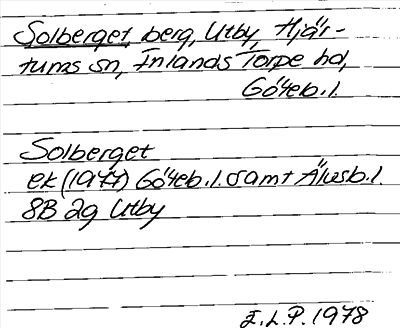 Solberget, berg, Utby, Hjär-
tums sn, Inlands Torpe hd,
Göteb. l.
Solberget
ek (1977) Göteb. l. samt Älvsb. l.
8B 2g Utby
E.L.P. 1978